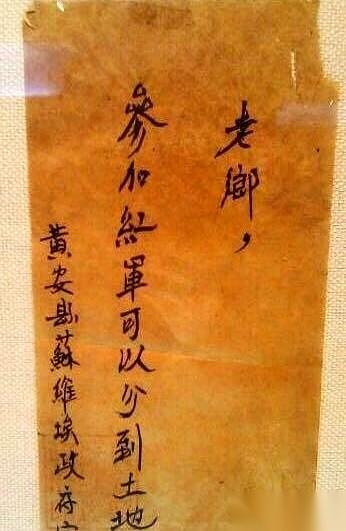 老鄉，
參加紅軍可以分到土地
黄安县蘇維埃政府宣